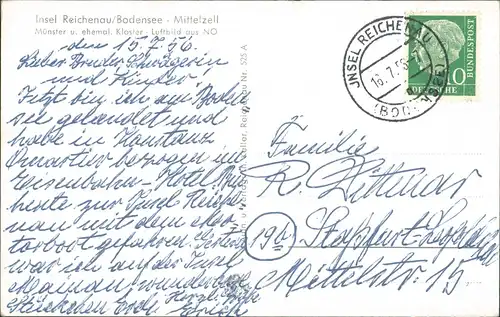 Insel Reichenau/Bodensee - Mittelzell
Münster u. ehemal. Kloster - Luftbild aus NO
den 15.7.56
Lieber Bruder Schwägerin
und Kinder!
Jetzt bin ich am Boden
see gelandet und
habe in Konstanz
Quartier bezogen im
Eisenbahn-Hotel. Bin
heute zur Insel Reiche
nau mit dem Mo
torboot gefahren. Gestern
war ich auf der Insel
Mainau wunderbares
Stückchen Erde. Herzl. Grüße
Erich
Reichenau Nr. 525 A
INSEL REICHENAU
16.7.56
(BODENSEE)
DEUTSCHE
BUNDESPOST
10
Familie
R. Dittmar
19b
Staßfurt-Leopoldshall
Mittelstr. 15